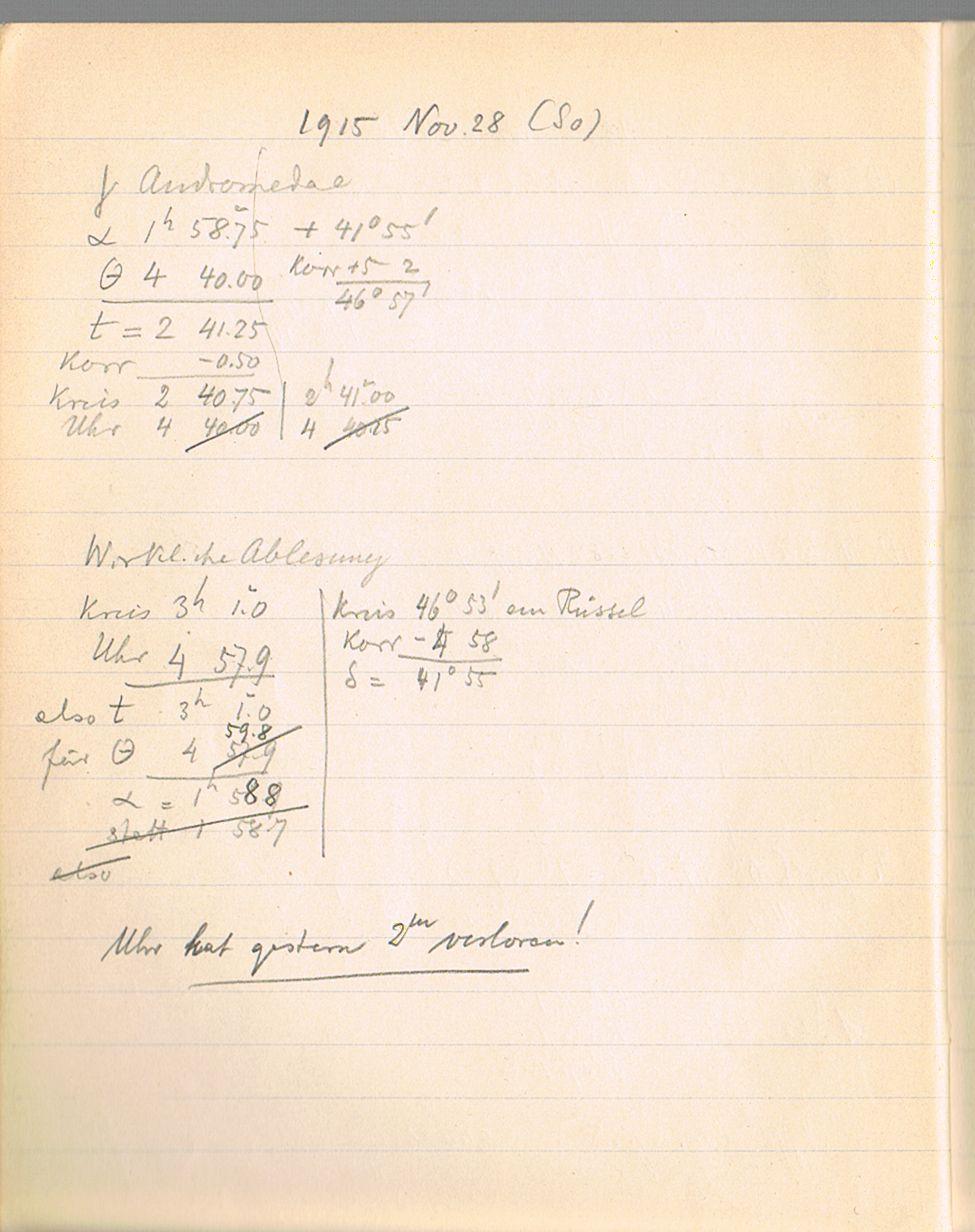 1915 Nov. 28 (So)
γ Andromedae
α 1h 58.75 + 41° 55'
θ 4 40.00 Korr +5 2
46° 57'
t = 2 41.25
Korr -0.50
Kreis 2 40.75 | 2h 41.00
Uhr 4 40.00 | 4 40.25
Wirkliche Ablesung
Kreis 3h 1.0 Kreis 46° 53' am Rüssel
Uhr 4 57.9 Korr -4 58
δ = 41° 55
also t 3h 1.0
59.8
für θ 4 57.9
α = 1h 58.8
statt 1 58.7
also
Uhr hat gestern 2m verloren!